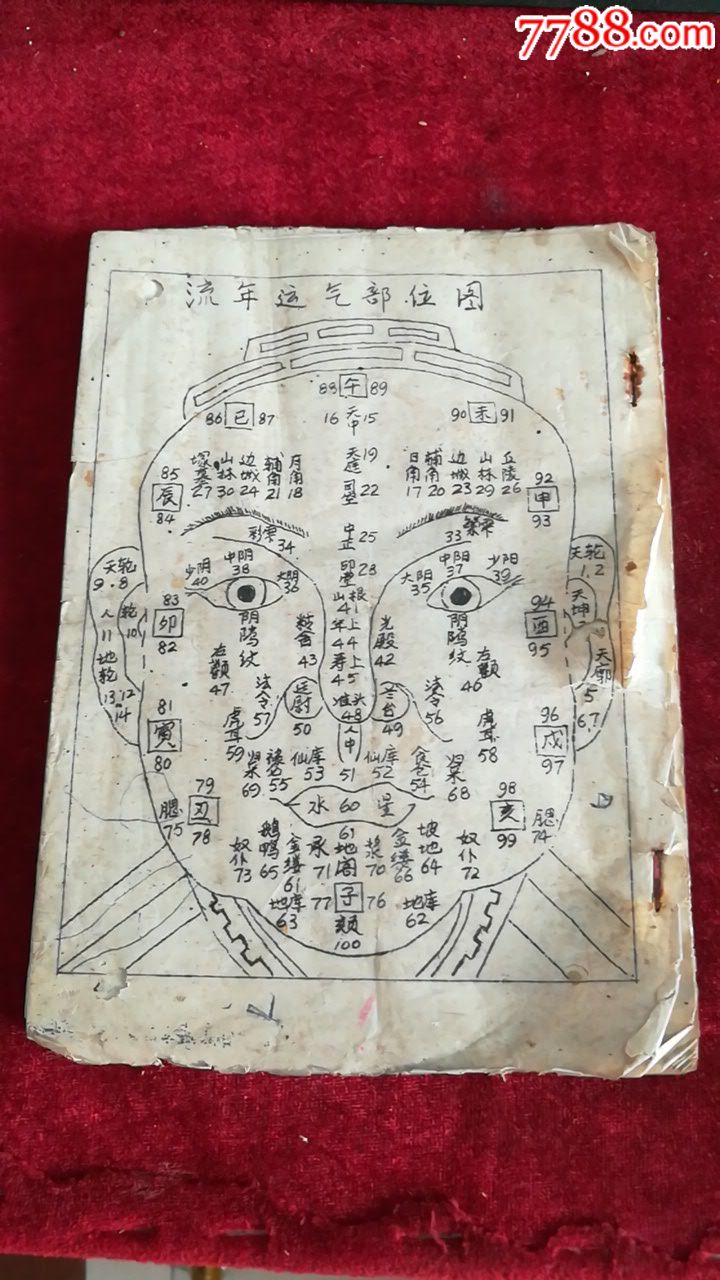 7788.com
流年运气部位图
88 午 89
86 巳 87
16 天中 15
90 未 91
85 辰 84
塚墓 27
山林 30
边城 24
辅角 21
月角 18
天庭 19
司空 22
中正 25
印堂 28
日角 17
辅角 20
边城 23
山林 29
丘陵 26
92 申 93
彩霞 34
33
少阴 40
中阴 38
太阴 36
大阳 35
中阳 37
少阳 39
天轮 9.8
人轮 11 10
地轮 13 12 14
天轮 1.2
天廓 5 6 7
83 卯 82
阴隲纹
山根 41
年上 44
寿上 45
准头 48
人中 51
43
光殿 42
阴隲纹
94 酉 95
右颧 47
法令 57
廷尉 50
兰台 49
法令 56
46
81 寅 80
虎耳 59
归来 69
55
仙库 53
仙库 52
食仓 54
归来 68
虎耳 58
96 戌 97
79 丑 78
腮 75
水 60 星
98 亥 99
腮 74
奴仆 73
鹅鸭 65
金缕 61
承 71
61 地阁
浆 70
金缕 66
坡地 64
奴仆 72
地库 63
77 子 76
地库 62
颏 100